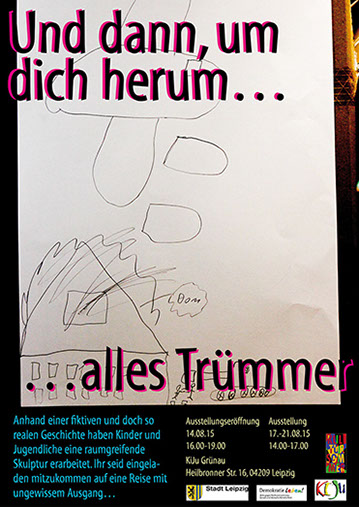 Und dann, um
dich herum...
Dom
...alles Trümmer
Anhand einer fiktiven und doch so
realen Geschichte haben Kinder und
Jugendliche eine raumgreifende
Skulptur erarbeitet. Ihr seid eingela-
den mitzukommen auf eine Reise mit
ungewissem Ausgang...
Ausstellungseröffnung
14.08.15
16.00-19.00
Ausstellung
17.-21.08.15
14.00-17.00
KiJu Grünau
Heilbronner Str. 16, 04209 Leipzig
Stadt Leipzig
Demokratie Leben!
KIJU